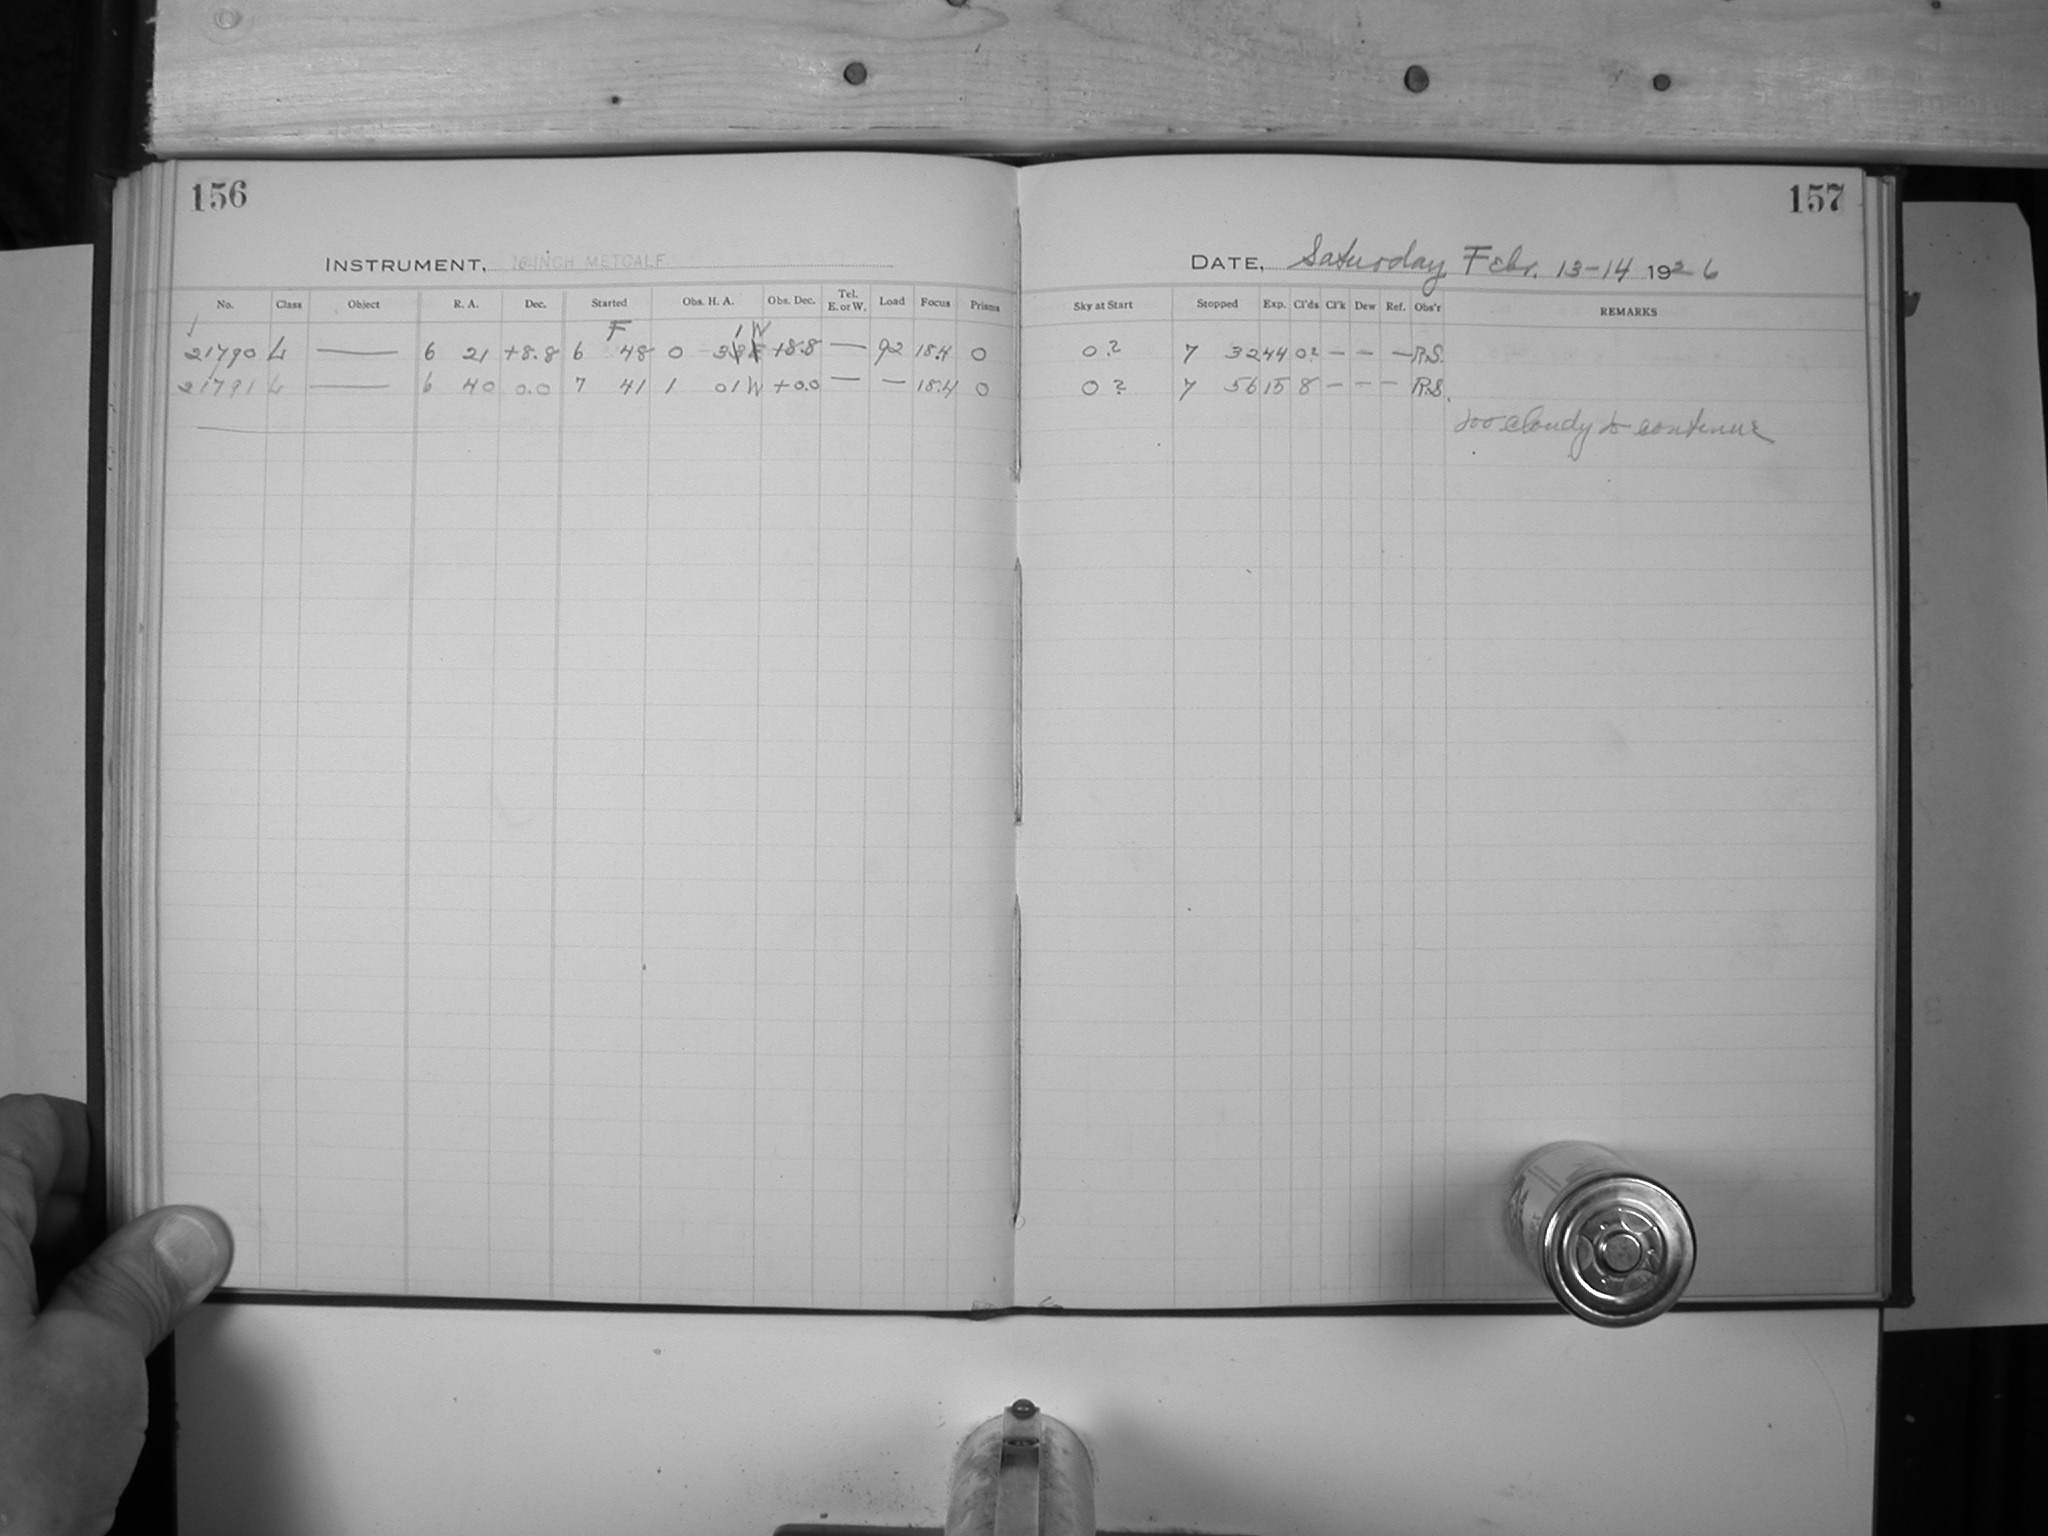 156
157
INSTRUMENT, 16-INCH METCALF
DATE, Saturday Febr. 13-14 1926
No. Class Object R. A. Dec. Started Obs. H. A. Obs. Dec. Tel. E. or W. Load Focus Prisms Sky at Start Stopped Exp. Cl'ds Cl'k Dew Ref. Obs'r REMARKS
F 1 W
21790 L — 6 21 +8.8 6 48 0 3 +8.8 — 92 18.4 0 0? 7 32 44 0? — — — R.S.
21791 L — 6 40 0.0 7 41 1 01 W +0.0 — — 18.4 0 0? 7 56 15 8 — — — R.S.
too cloudy to continue